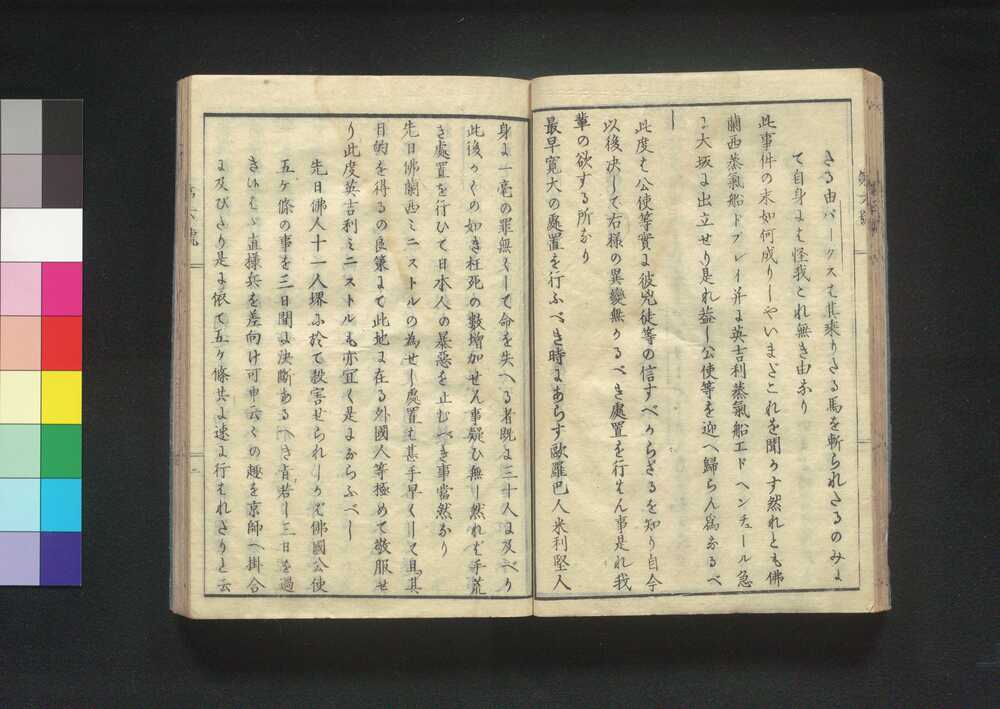 きる由パークスは其乘りたる馬を斬られたるのみに
て自身には怪我これ無き由なり
此事件の末如何成りしやいまだこれを聞かす然れとも佛
蘭西蒸氣船ドプレイ并に英吉利蒸氣船エドヘンチュール急
に大坂に出立せり是れ蓋し公使等を迎へ歸らん爲なるべ
し
此度は公使等實に彼兇徒等の信すべからざるを知り自今
以後决して右樣の異變無かるべき處置を行はん事是れ我
輩の欲する所なり
最早寛大の處置を行ふべき時にあらす歐羅巴人米利堅人
身に一毫の罪無くして命を失へる者既に三十人に及べり
此後かくの如き枉死の數増加せん事疑ひ無し然れば手荒
き處置を行ひて日本人の暴惡を止むべき事當然なり
先日佛蘭西ミニストルの為せし處置は甚手早くして且其
目的を得るの良策にて此地に在る外國人等極めて敬服せ
り此度英吉利ミニストルも亦宜く是にならふべし
先日佛人十一人堺に於て殺害せられしかば佛國公使
五ケ條の事を三日間に决斷あるべき旨若し三日を過
きなば直樣兵を差向け可申云々の趣を京師へ掛合
に及びたり是に依て五ケ條共に速に行はれたりと云